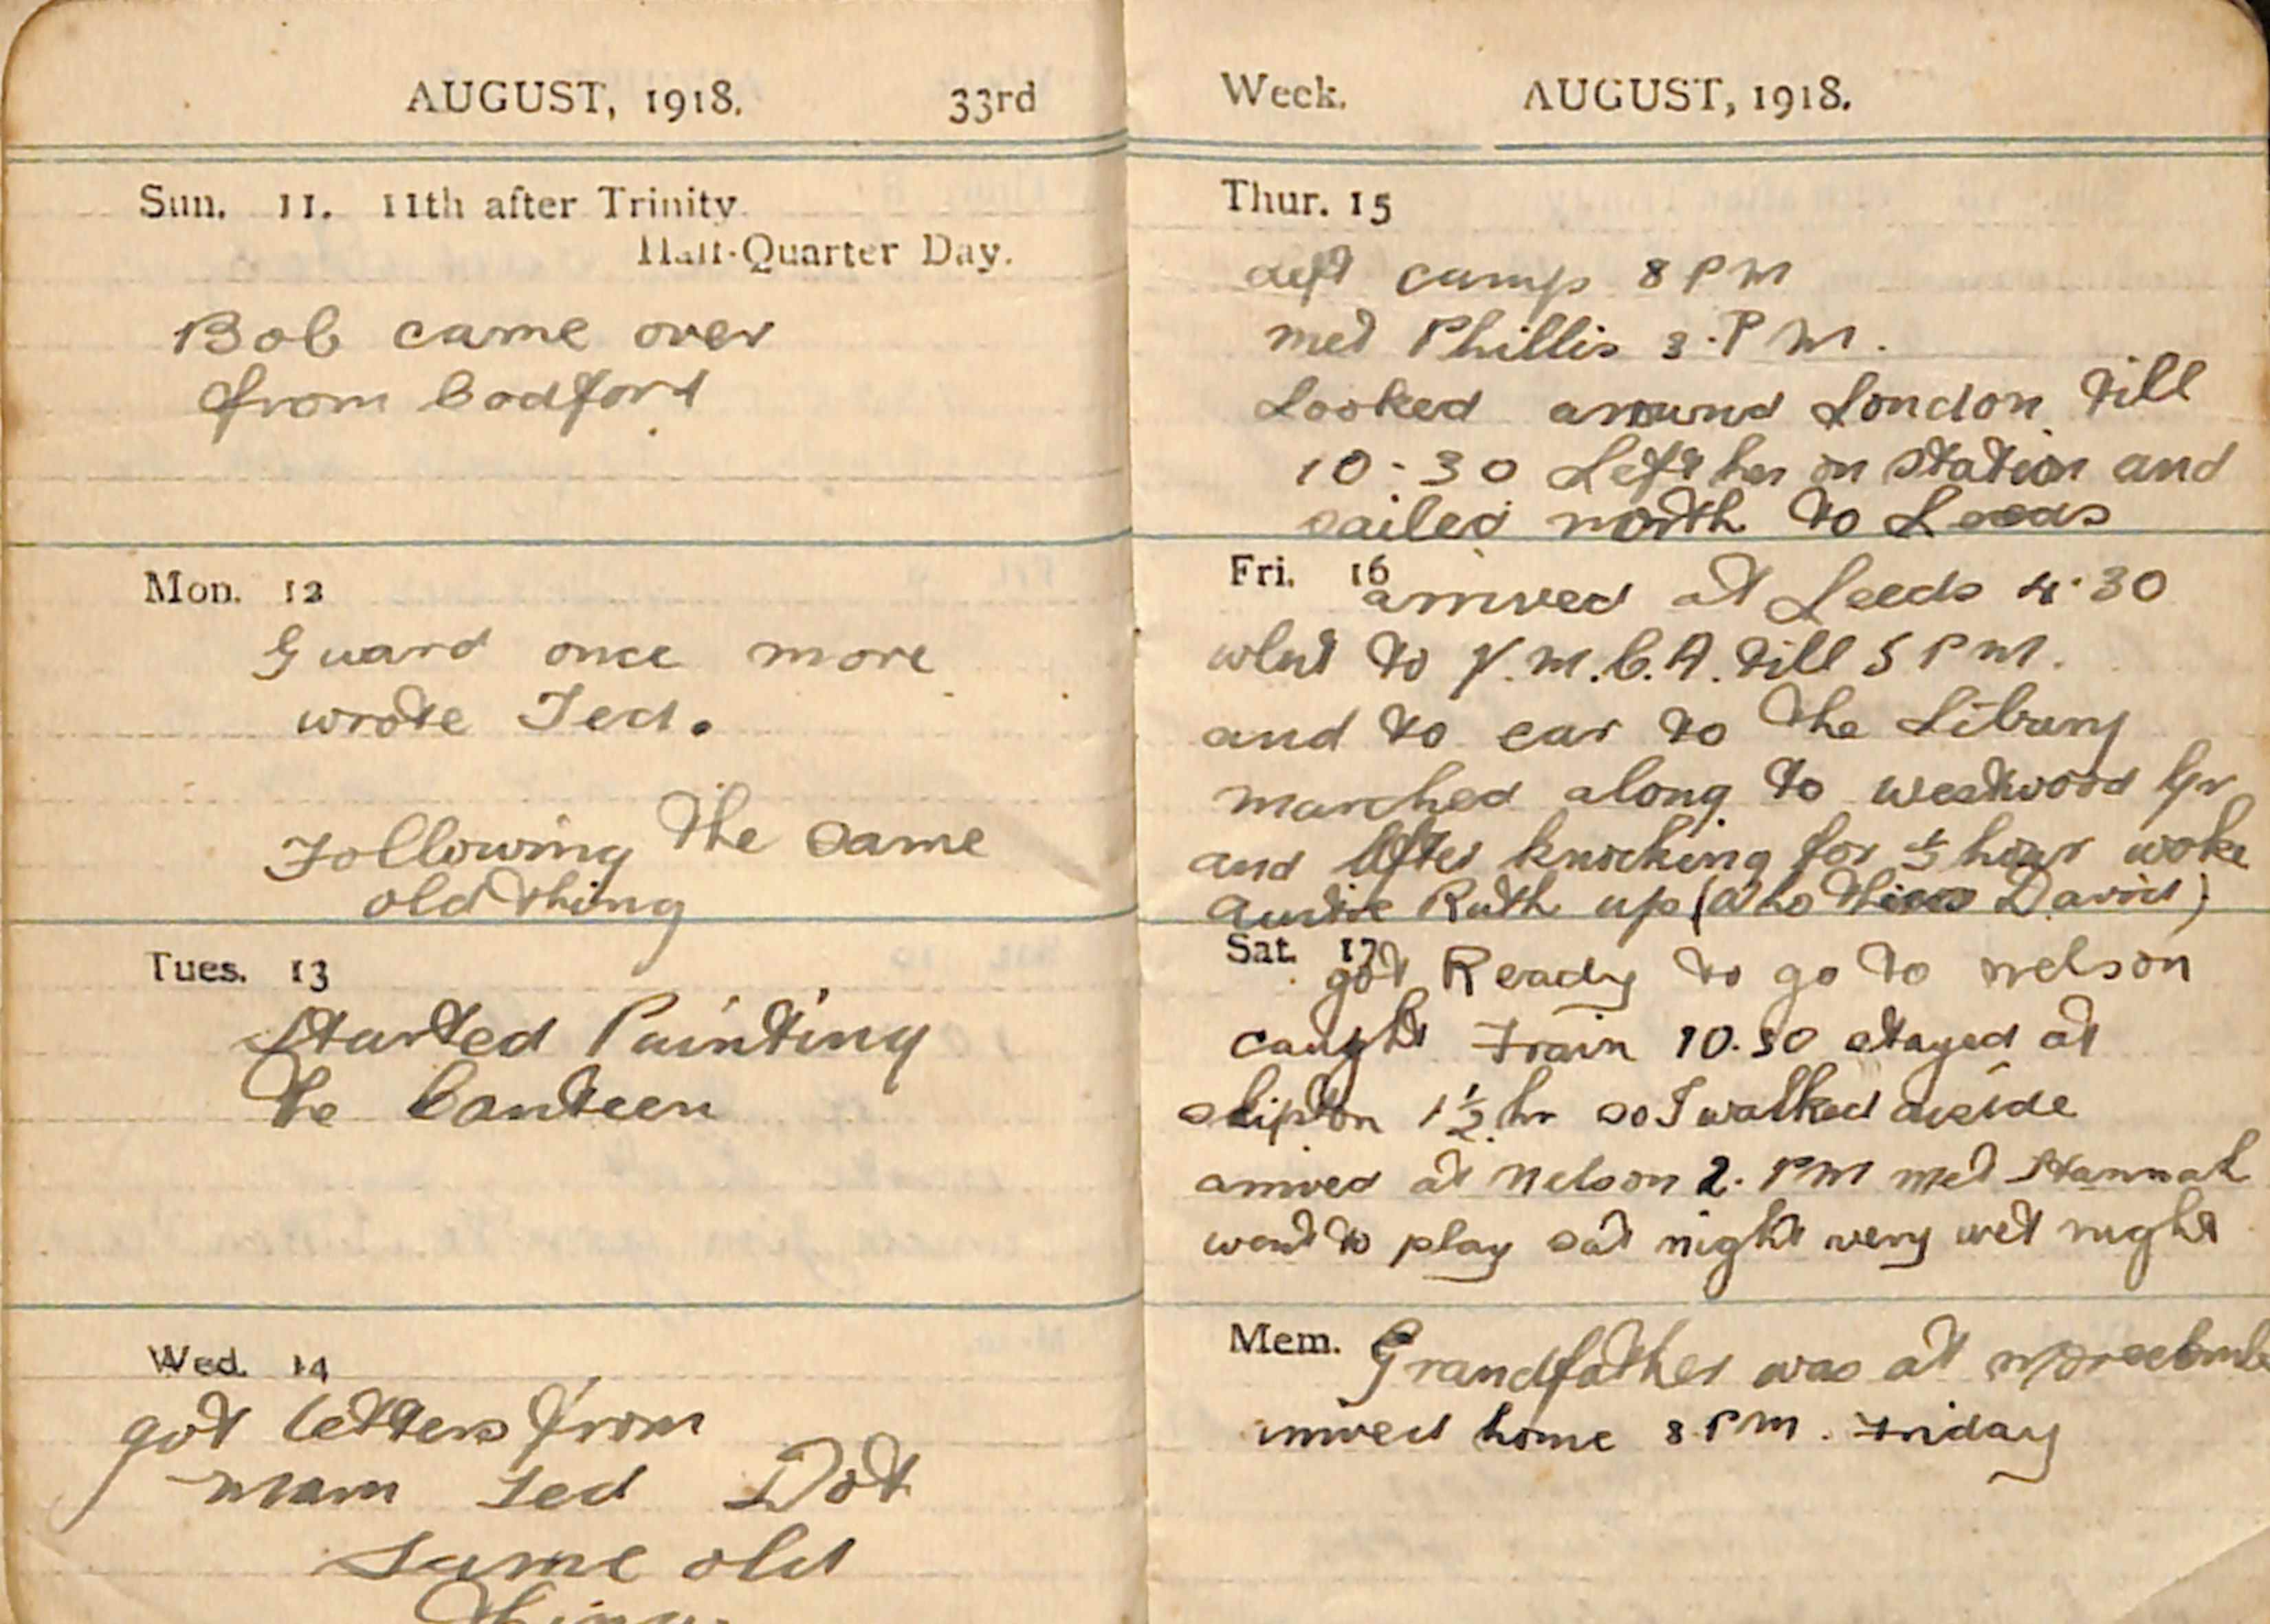 AUGUST, 1918. 33rd
Sun. 11. 11th after Trinity
Half-Quarter Day.
Bob came over
from Codford
Mon. 12
Guard once more
wrote Ted.
Following the same
old thing
Tues. 13
Started Painting
the Canteen
Wed. 14
got letters from
mam Ted Dot
Same old
thing
Week. AUGUST, 1918.
Thur. 15
left camp 8 PM
met Phillis 3.P M.
Looked around London till
10-30 Left her on station and
sailed north to Leeds
Fri. 16
arrived at Leeds 4.30
went to Y.M.C.A. till 5 PM.
and to car to the Library
marched along to westwood Gr
and After knocking for hour woke
Auntie Ruth up (also David)
Sat. 17
got Ready to go to nelson
caught Train 10.30 stayed at
skipton 1½ hr so I walked
arrived at Nelson 2. PM met Hannah
went to play sat night very wet night
Mem. Grandfather was at
arrived home 8 PM. Friday